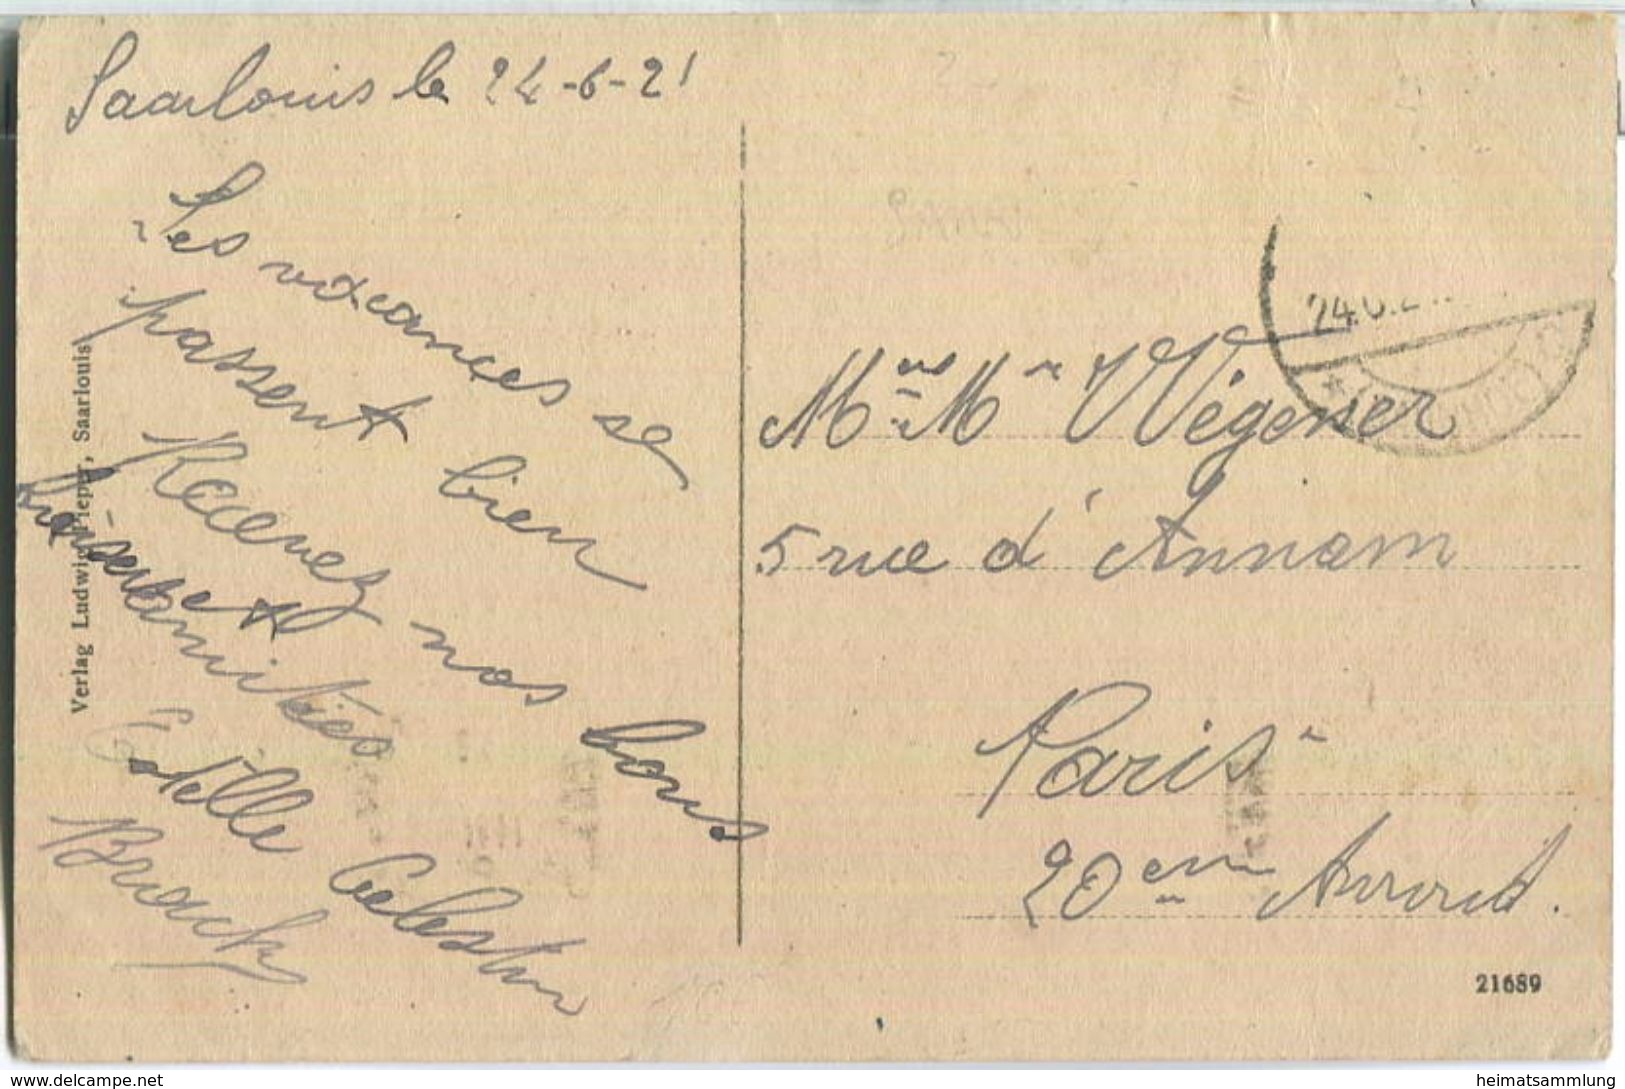 Saarlouis le 24-6-21
Les vacances se
passent bien
Recevez nos bons
baisers et
amitiés
Estelle Célestin
Brack
Verlag Ludwig Pieper, Saarlouis
24.6.2
Mr et Mme Wégener
5 rue d'Annam
Paris
20em Arrond.
21689
www.delcampe.net
heimatsammlung